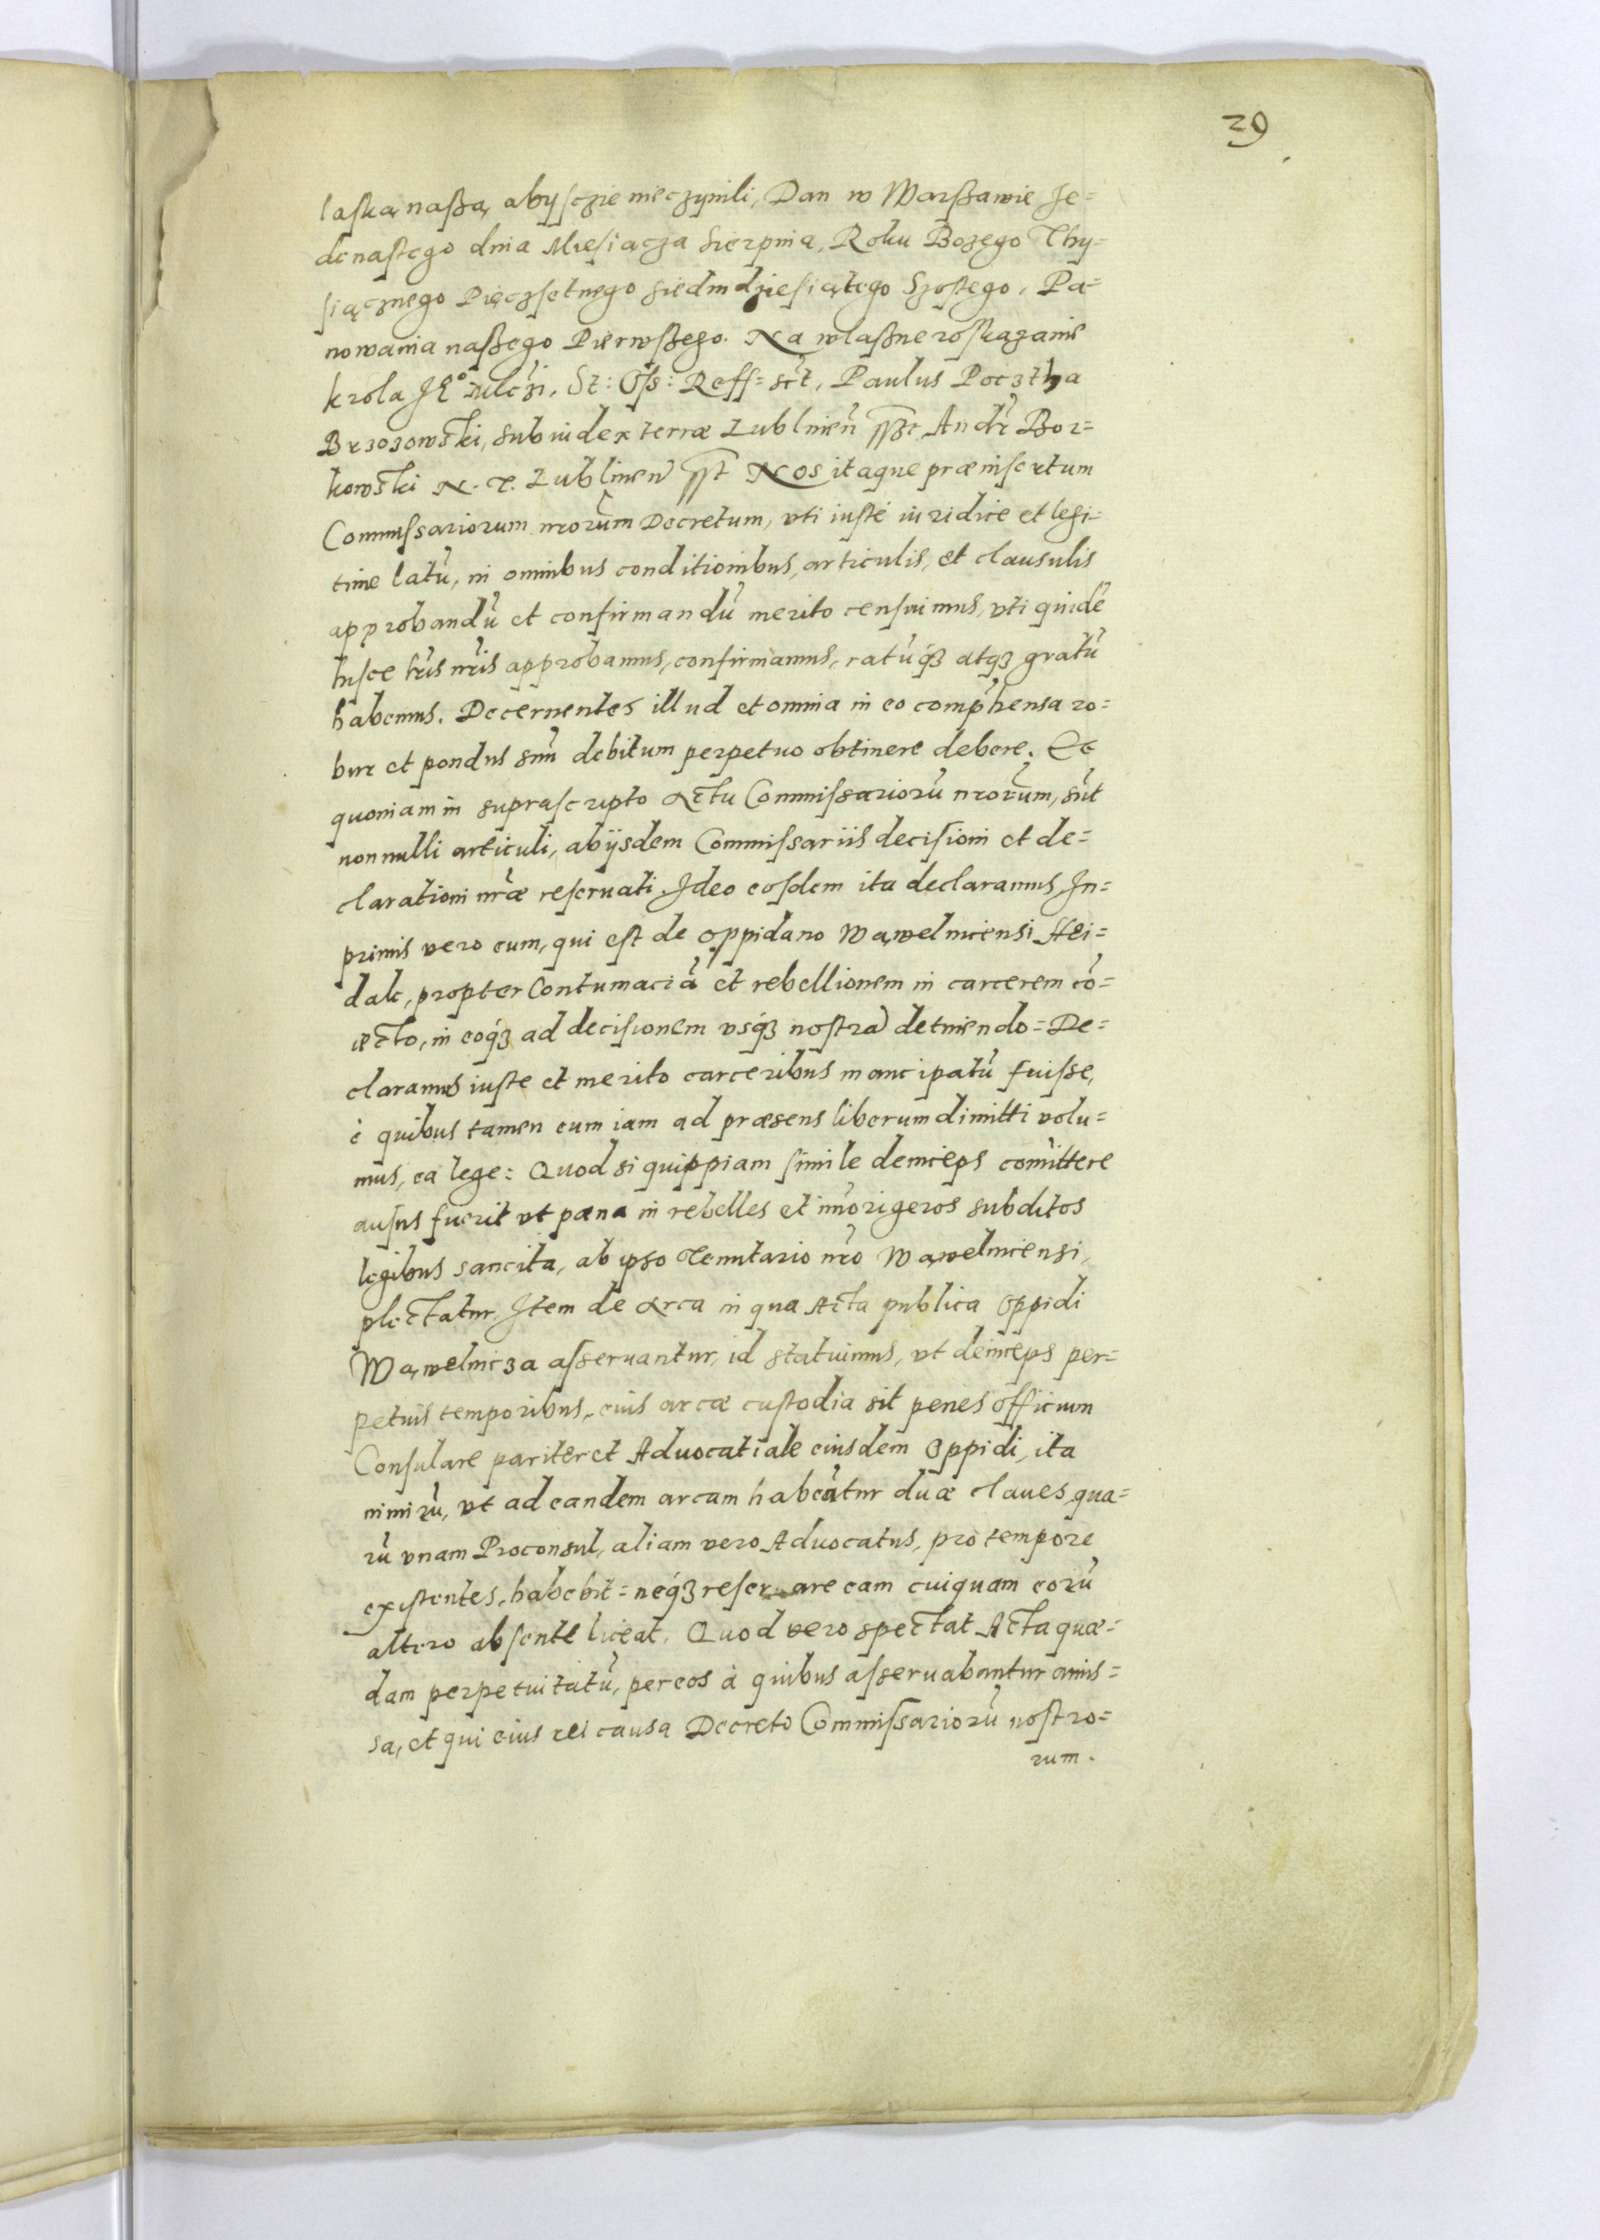 29
łaską naszą abysczie nieczynili, Dan w Warszawie Je=
denastego dnia Miesiącza Sierpnia, Roku Bozego Thy=
siącznego Pięczsetnego siedmdziesiątego Szostego, Pa=
nowania naszego Pierwszego. Na własne roskazanie
krola J̃º Mlczi. St: Oss: Reff= sct, Paulus Pocztha
Brzozowski, subiudex terræ Lublineñ sst Andr̃ Bor=
kowski N. T. Lublineñ sst Nos itaque præinsertum
Commissariorum nr̃orum Decretum, vti iustè iuridice et legi=
time latũ, in omnibus conditionibus, articulis, et clausulis
approbandũ et confirmandũ merito censuimus, vti quidẽ
hisce lr̃is nr̃is approbamus, confirmamus, ratũq̃ʒ atqʒ gratũ
habemus. Decernentes illud et omnia in eo comp̃hensa ro=
bur et pondus suũ debitum perpetuo obtinere debere. Et
quoniam in suprascripto Actu Commissariorũ nr̃orum, sũt
nonnulli articuli, ab ijsdem Commissariis decisioni et de=
clarationi nr̃æ reseruati. Ideo eosdem ita declaramus, In=
primis vero eum, qui est de oppidano Wąwelnicensi Hei=
dak, propter Contumaciã et rebellionem in carcerem cõ=
iecto, in eoq̃ʒ ad decisionem vsq̃ʒ nostrã detinendo= De=
claramus iuste et merito carceribus mancipatũ fuisse,
è quibus tamen eum iam ad præsens liberum dimitti volu=
mus, ea lege: Quod si quippiam simile deinceps com̃ittere
ausus fuerit vt pœna in rebelles et im̃origeros subditos
legibus sancita, ab ipso Tenutario nr̃o Wąwelnicensi,
plectatur, Item de Arca in qua Acta publica Oppidi
Wąwelnicza asseruantur, id statuimus, vt deinceps per=
petuis temporibus, eius arcæ custodia sit penes officium
Consulare pariter et Aduocatiale eiusdem Oppidi, ita
nimirũ, vt ad eandem arcam habeãtur duæ claues, qua=
rũ vnam Proconsul, aliam vero Aduocatus, pro tempore
existentes, habebit= neq̃ʒ reserare eam cuiquam eorũ
altero absente liceat. Quod vero spectat Acta quæ=
dam perpetuitatũ, per eos à quibus asseruabantur amis=
sa, et qui eius rei causa Decreto Commissariorũ nostro=
rum.